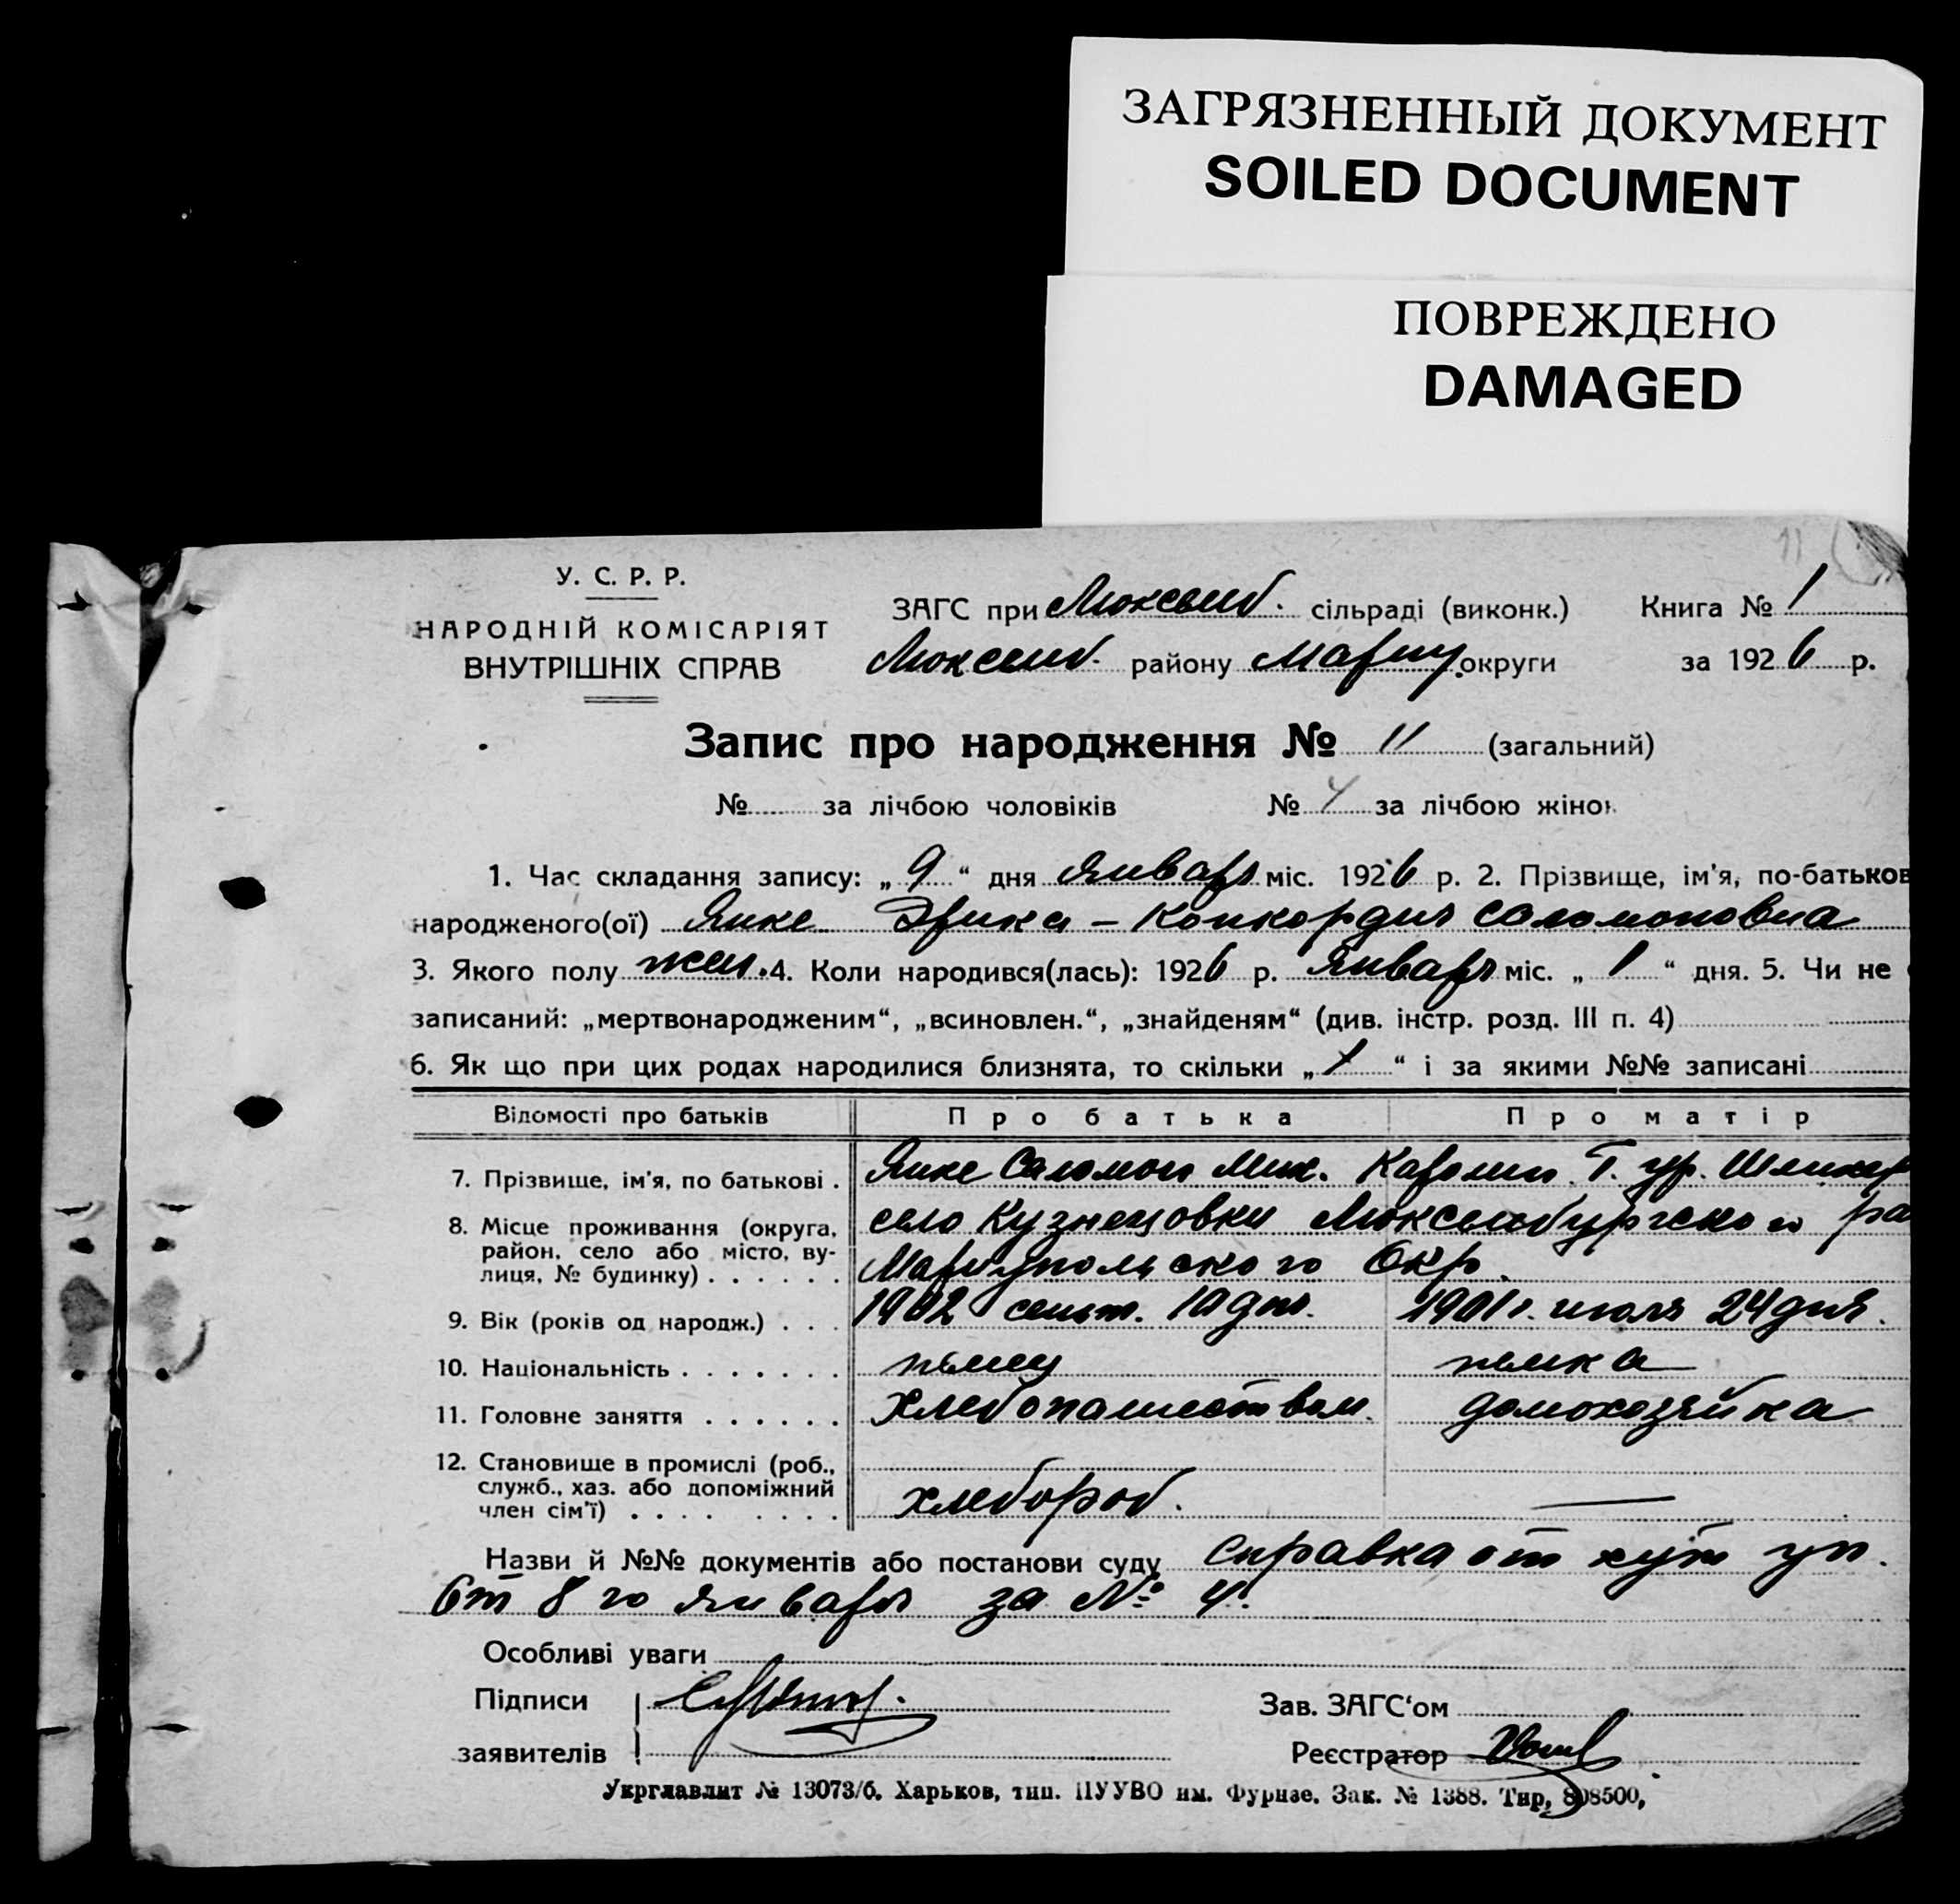 ЗАГРЯЗНЕННЫЙ ДОКУМЕНТ
SOILED DOCUMENT
ПОВРЕЖДЕНО
DAMAGED
11
У. С. Р. Р.
НАРОДНІЙ КОМІСАРІЯТ
ВНУТРІШНІХ СПРАВ
ЗАГС при Люксемб. сільраді (виконк.) Книга № 1
Люксемб. району Мариу. округи за 1926 р.
Запис про народження № 11 (загальний)
№ за лічбою чоловіків № 4 за лічбою жінок
1. Час складання запису: „9“ дня Января міс. 1926 р. 2. Прізвище, ім'я, по-батьков
народженого(ої) Янке Эрика – Конкордия Соломоновна
3. Якого полу жен. 4. Коли народився(лась): 1926 р. Января міс. „1“ дня. 5. Чи не
записаний: „мертвонародженим“, „всиновлен.“, „знайденям“ (див. інстр. розд. III п. 4)
6. Як що при цих родах народилися близнята, то скільки „1“ і за якими №№ записані
Відомості про батьків Про батька Про матір
7. Прізвище, ім'я, по батькові . Янке Саломон Мих. Каролин. Г. ур.
8. Місце проживання (округа, район, село або місто, ву-
лиця, № будинку) . . . . . . село Кузнецовки Люксембургского ра
Мариупольского Окр.
9. Вік (років од народж.) . . . 1902 сент. 10 дня. 1901 г. июля 24 дня.
10. Національність . . . . . . . немец немка
11. Головне заняття . . . . . . Хлебопашеством. домохозяйка
12. Становище в промислі (роб.,
служб., хаз. або допоміжний
член сім'ї) . . . . . . . . хлебороб. —
Назви й №№ документів або постанови суду справка от хут уп.
От 8 го января за № 4.
Особливі уваги
Підписи Зав. ЗАГС‘ом
заявителів Реєстратор
Укрглавлит № 13073/б. Харьков, тип. ПУУВО им. Фрунзе. Зак. № 1388. Тир. 808500,